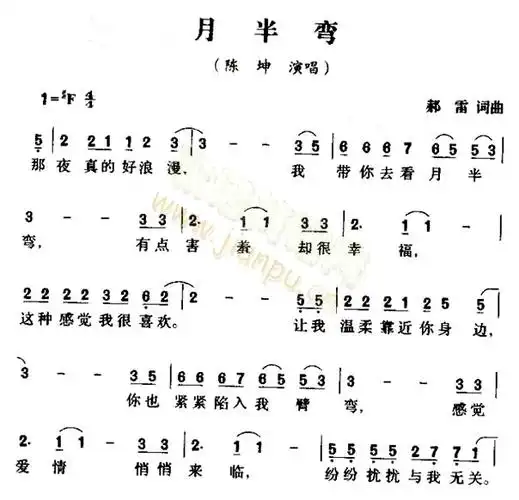 月半弯
（陈坤 演唱）
1=♯F 4/4
郝雷 词曲
5 | 2 2 1 1 2 3 | 3 - - 3 5 | 6 6 6 7 6 5 5 3 |
那夜真的好浪漫， 我 带你去看月半
3 - - 3 3 | 2· 1 1 3 3 | 2· 1 1 |
弯， 有点害羞 却很幸福，
2 2 2 2 3 2 6 2 | 2 - - 5 5 | 2 2 2 1 2 5 |
这种感觉我很喜欢。 让我 温柔靠近你身边，
3 - - 3 5 | 6 6 6 7 6 5 5 3 | 3 - - 3 3 |
你也 紧紧陷入我臂弯， 感觉
2· 1 1 3 3 | 2· 1 1 - | 5 5 5 5 2 7 7 6 |
爱情 悄悄来临， 纷纷扰扰与我无关。
www.jianpu.com